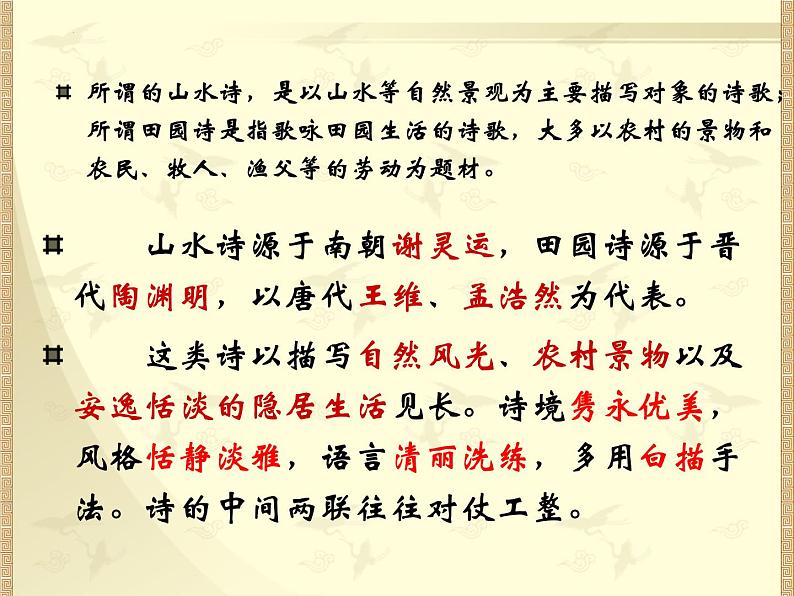 所谓的山水诗，是以山水等自然景观为主要描写对象的诗歌；
所谓田园诗是指歌咏田园生活的诗歌，大多以农村的景物和
农民、牧人、渔父等的劳动为题材。
山水诗源于南朝谢灵运，田园诗源于晋
代陶渊明，以唐代王维、孟浩然为代表。
这类诗以描写自然风光、农村景物以及
安逸恬淡的隐居生活见长。诗境隽永优美，
风格恬静淡雅，语言清丽洗练，多用白描手
法。诗的中间两联往往对仗工整。